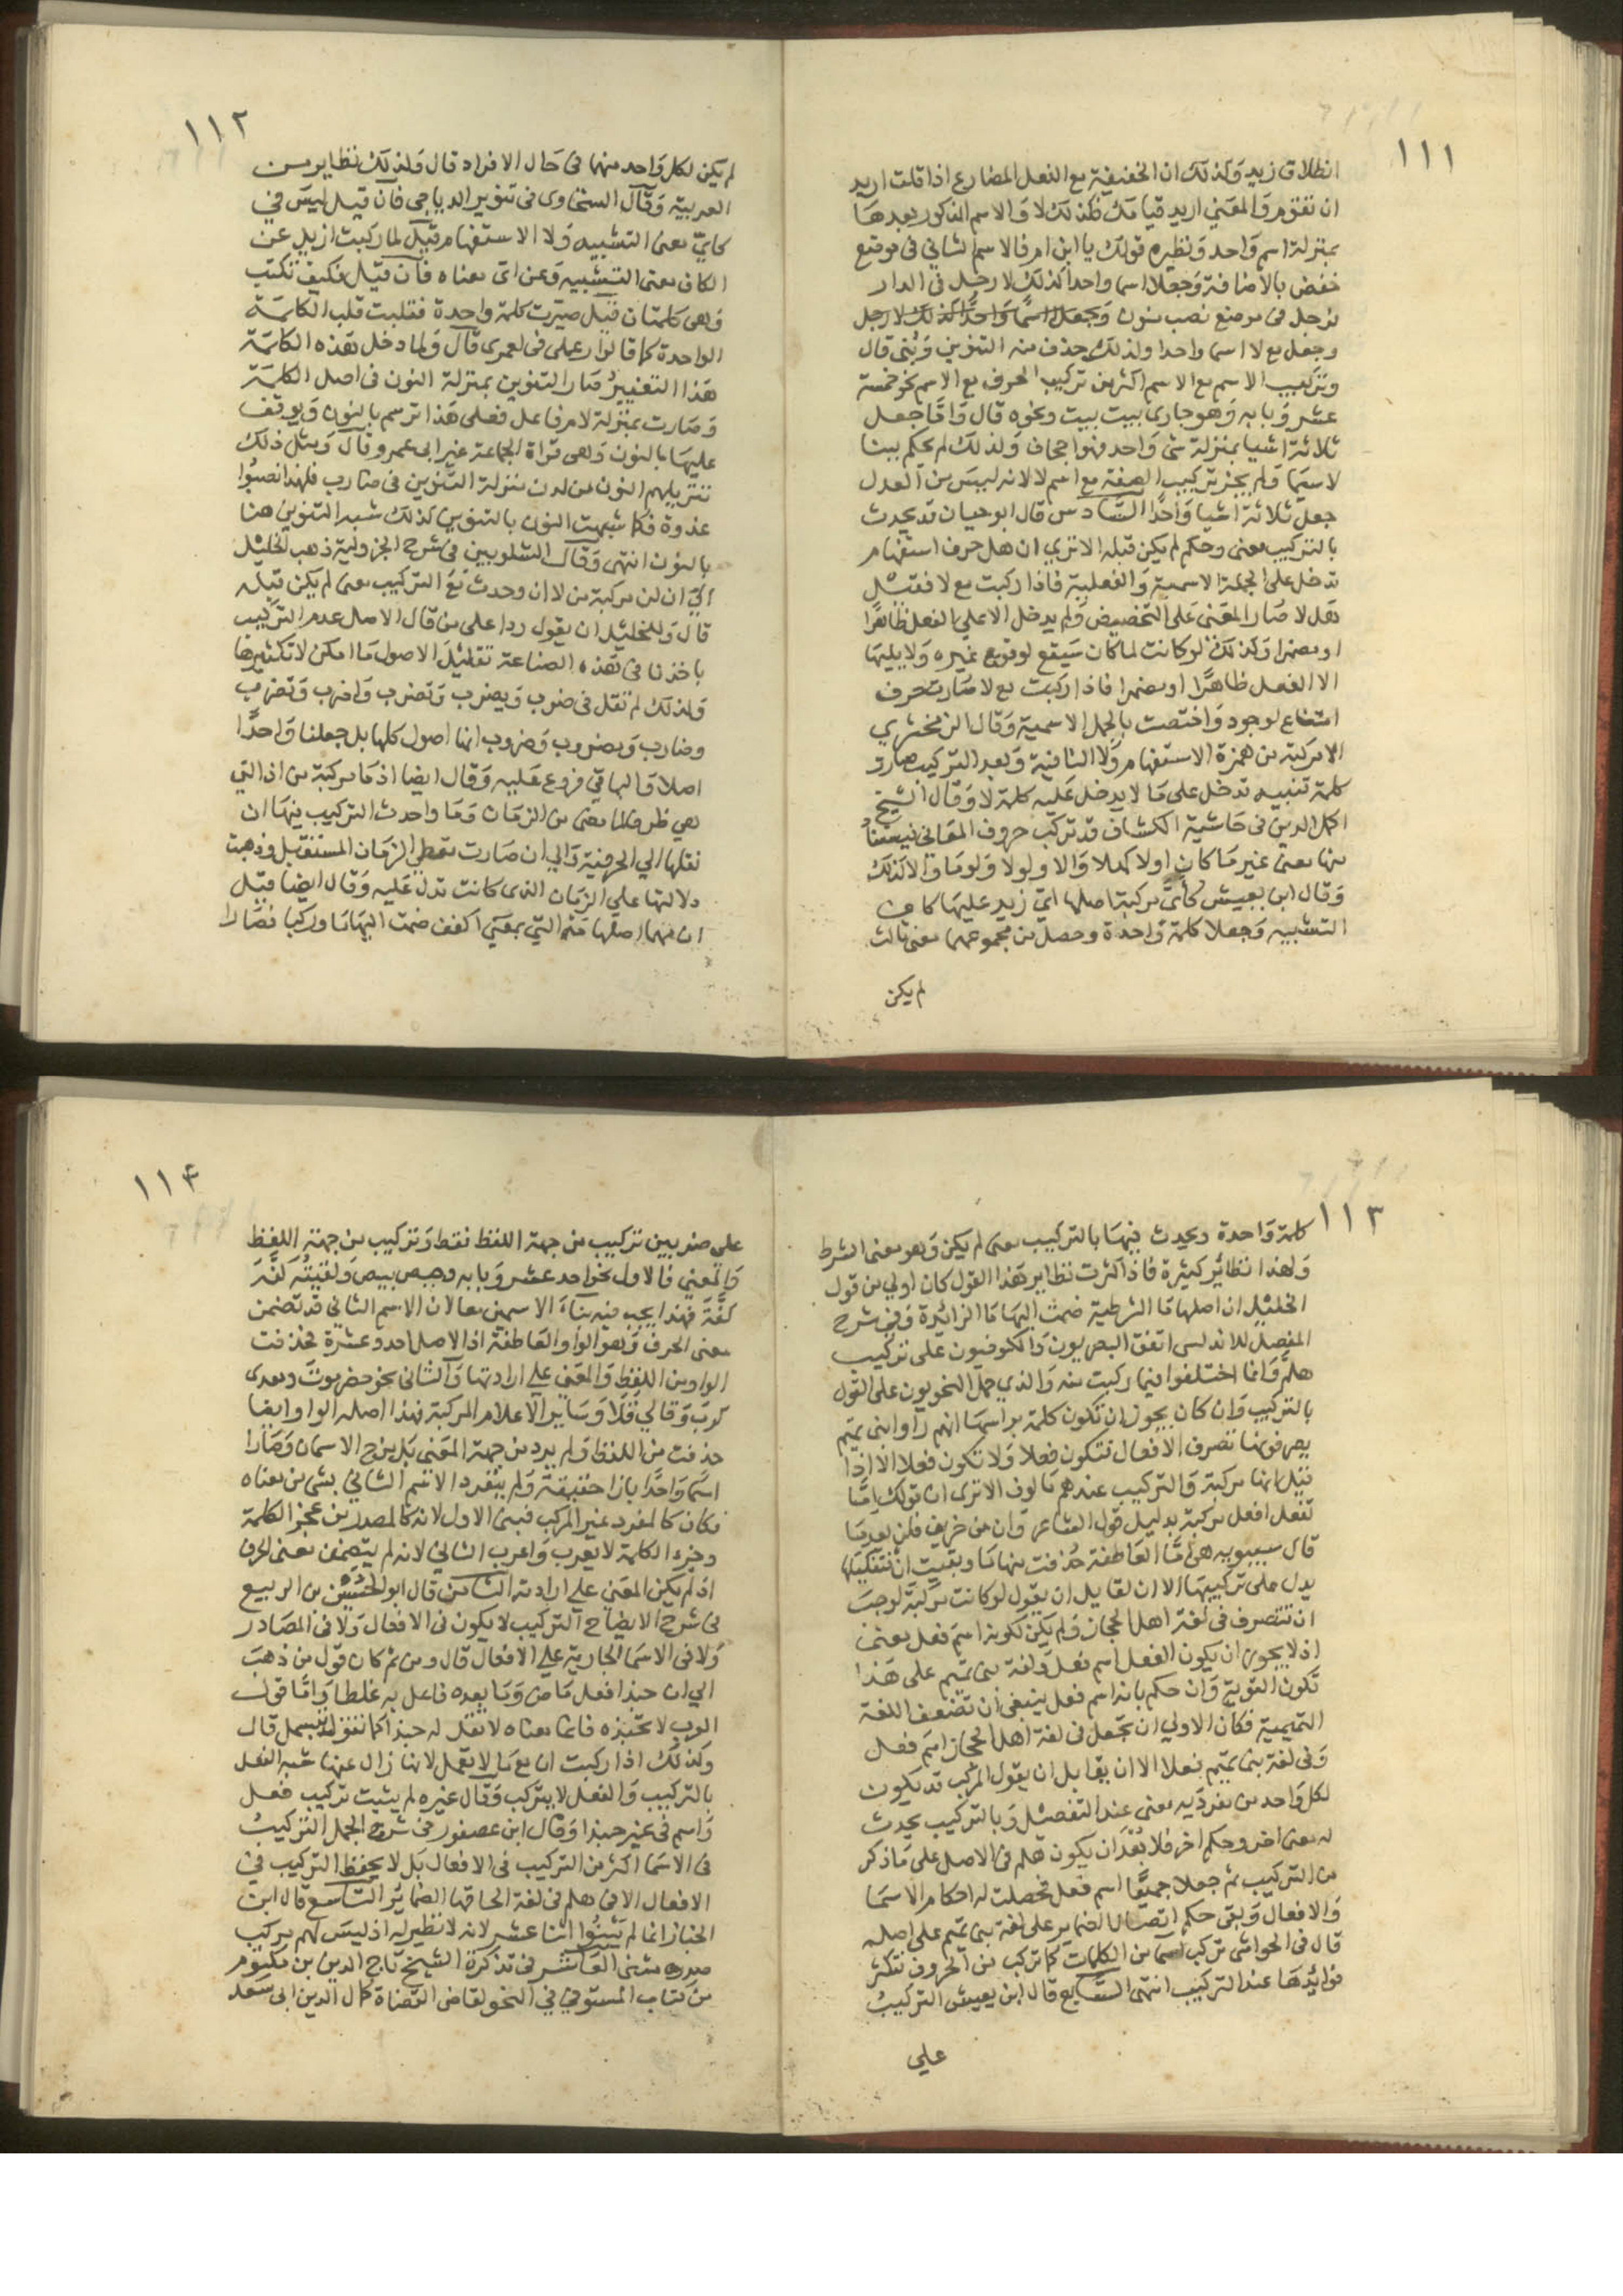 ١١١
انطلاق زيد وكذلك ان الخفيفة مع الفعل المضارع اذا قلت اريد
ان تقوم والمعنى اريد قيامك فكذلك لا والاسم المذكور بعدها
بمنزلة اسم واحد ونظيره قولك يا ابن ام فالاسم الثاني في موضع
خفض بالاضافة وجعلا اسما واحدا كذلك لا رجل في الدار
فرجل في موضع نصب منون وجعل اسما واحدا كذلك لا رجل
وجعل مع لا اسما واحدا ولذلك حذف منه التنوين وبني قال
وتركيب الاسم مع الاسم اكثر من تركيب الحرف مع الاسم نحو خمسة
عشر وبابه وهو جاري بيت بيت ونحوه قال واما جعل
ثلاثة اشيا بمنزلة شي واحد فهو اجحاف ولذلك لم يحكم ببنا
لاسيما ولم يجز تركيب الصفة مع اسم لا لانه ليس من العدل
جعل ثلاثة اشيا واحدا السادس قال ابو حيان قد يحدث
بالتركيب معنى وحكم لم يكن قبله الا ترى ان هل حرف استفهام
تدخل على الجملة الاسمية والفعلية فاذا ركبت مع لا فقيل
هل لا صار المعنى على التحضيض ولم يدخل الا على الفعل ظاهرا
او مضمرا وكذلك لو كانت لما كان سيقع لوقوع غيره ولا يليها
الا الفعل ظاهرا او مضمرا فاذا ركبت مع لا صارت حرف
امتناع لوجود واختصت بالجمل الاسمية وقال الزمخشري
الا مركبة من همزة الاستفهام ولا النافية وبعد التركيب صارت
كلمة تنبيه تدخل على ما لا يدخل عليه كلمة لا وقال الشيخ
اكمل الدين في حاشية الكشاف قد تركب حروف المعاني فيستفاد
منها معنى غير ما كان اولا كهلا والا ولولا ولوما والا كذلك
وقال ابن يعيش كأي مركبة اصلها اي زيد عليها كاف
التشبيه وجعلا كلمة واحدة وحصل من مجموعهما معنى ثالث
لم يكن
١١٢
لم يكن لكل واحد منهما في حال الافراد قال ولذلك نظاير من
العربية وقال السخاوى في تنوير الدياجي فان قيل ليس في
كأي معنى التشبيه ولا الاستفهام قيل لما ركبت ازيل عن
الكاف معنى التشبيه وعن اي معناه فان قيل فكيف تكتب
وهي كلمتان قيل صيرت كلمة واحدة فقلبت قلب الكلمة
الواحدة كما قالوا رعملي في لعمرى قال ولما دخل هذه الكلمة
هذا التغيير صار التنوين بمنزلة النون في اصل الكلمة
وصارت بمنزلة لام فاعل فعلى هذا ترسم بالنون ويوقف
عليها بالنون وهي قراة الجماعة غير ابى عمرو وقال ومثل ذلك
تنزيلهم النون من لدن منزلة التنوين في ضارب فلهذا نصبوا
غدوة فكما شبهت النون بالتنوين كذلك شبه التنوين هنا
بالنون انتهى وقال الشلوبين في شرح الجزولية ذهب الخليل
الى ان لن مركبة من لا ان وحدث مع التركيب معنى لم يكن قبله
قال وللخليل ان يقول ردا على من قال الاصل عدم التركيب
باخذنا في هذه الصناعة تقليل الاصول ما امكن لا تكثيرها
ولذلك لم نقل في ضرب ويضرب وتضرب واضرب ونضرب
وضارب ومضروب وضروب انها اصول كلها بل جعلنا واحدا
اصلا والباقي فروع عليه وقال ايضا اذما مركبة من اذ التي
هي ظرف لما مضى من الزمان وما واحدث التركيب فيها ان
نقلها الي الحرفية والي ان صارت تعطي الزمان المستقبل وذهبت
دلالتها علي الزمان الذى كانت تدل عليه وقال ايضا قيل
ان مهما اصلها مه التي بمعني اكفف ضمت اليها ما وركبا فصارا
١١٣
كلمة واحدة ويحدث فيها بالتركيب معنى لم يكن وهو معنى الشرط
ولهذا نظائر كثيرة فاذا كثرت نظاير هذا القول كان اولي من قول
الخليل ان اصلها ما الشرطية ضمت اليها ما الزائدة وفي شرح
المفصل للاندلسي اتفق البصريون والكوفيون على تركيب
هلم وانما اختلفوا فيما ركبت منه والذي حمل النحويون على القول
بالتركيب وان كان يجوز ان تكون كلمة براسها انهم راوا بني تميم
يصرفونها تصرف الافعال فتكون فعلا ولا تكون فعلا الا اذا
قيل انها مركبة والتركيب عندهم مالوف الا ترى ان قولك اما
تفعل افعل مركبة بدليل قول الشاعر وان من خريف فلن يعدما
قال سيبويه هي اما العاطفة حذفت منها ما وبقيت ان تفكيكها
يدل على تركيبها الا ان لقايل ان يقول لو كانت مركبة لوجب
ان تتصرف في لغة اهل الحجاز ولم يكن لكونه اسم فعل معنى
اذ لا يجوز ان يكون الفعل اسم فعل ولغة بني تميم على هذا
تكون القوية وان حكم بانه اسم فعل ينبغي ان تضعف اللغة
التميمية فكان الاولي ان تجعل في لغة اهل الحجاز اسم فعل
وفي لغة بني تميم فعلا الا ان يقابل ان يقول المركب قد يكون
لكل واحد من مفرديه معنى عند التفصيل وبالتركيب يحدث
له معنى اخر وحكم اخر فلا بعد ان يكون هلم في الاصل على ما ذكر
من التركيب ثم جعلا جميعا اسم فعل فحصلت له احكام الاسما
والافعال وبقي حكم اتصال الضماير على لغة بني تميم على اصله
قال في الحواشي تركب اسما من الكلمات كما تركب من الحروف تتكثر
فوائدها عند التركيب انتهى السابع قال ابن يعيش التركيب
علي
١١٤
على ضربين تركيب من جهة اللفظ فقط وتركيب من جهة اللفظ
والمعني فالاول نحو احد عشر وبابه وحيص بيص ولقيته كفة
كفة فهذا يجب فيه بناء الاسمين معا لان الاسم الثاني قد تضمن
معنى الحرف وهو الواو العاطفة اذ الاصل احد وعشرة فحذفت
الواو من اللفظ والمعنى علي ارادتها والثاني نحو حضرموت ومعدى
كرب وقالي قلا وساير الاعلام المركبة فهذا اصله الواو ايضا
حذفت من اللفظ ولم يرد من جهة المعنى بل مزج الاسمان وصارا
اسما واحدا بازا حقيقة ولم ينفرد الاسم الثاني بشي من معناه
فكان كالمفرد غير المركب فبنى الاول لانه كالصدر من عجز الكلمة
وجزء الكلمة لا يعرب واعرب الثاني لانه لم يتضمن معنى الحرف
اذ لم يكن المعنى علي ارادته الثامن قال ابو الحسين بن الربيع
في شرح الايضاح التركيب لا يكون في الافعال ولا في المصادر
ولا في الاسما الجارية علي الافعال قال ومن ثم كان قول من ذهب
الي ان حبذا فعل ماض وما بعده فاعل به غلطا واما قول
العرب لا تحبذه فانما معناه لا تقل له حبذا كما تقول بسمل قال
وكذلك اذا ركبت ان مع ما لا تعمل لانها زال عنها شبه الفعل
بالتركيب والفعل لا يتركب وقال غيره لم يثبت تركيب فعل
واسم في غير حبذا وقال ابن عصفور في شرح الجمل التركيب
في الاسما اكثر من التركيب في الافعال بل لا يحفظ التركيب في
الافعال الا في هلم في لغة الحاقها الضمائر التاسع قال ابن
الخباز انما لم يبنوا اثنا عشر لانه لا نظير له اذ ليس لهم مركب
صدره مثنى العاشر في تذكرة الشيخ تاج الدين بن مكتوم
من كتاب المستوفي في النحو لقاضي القضاة كمال الدين ابى سعد